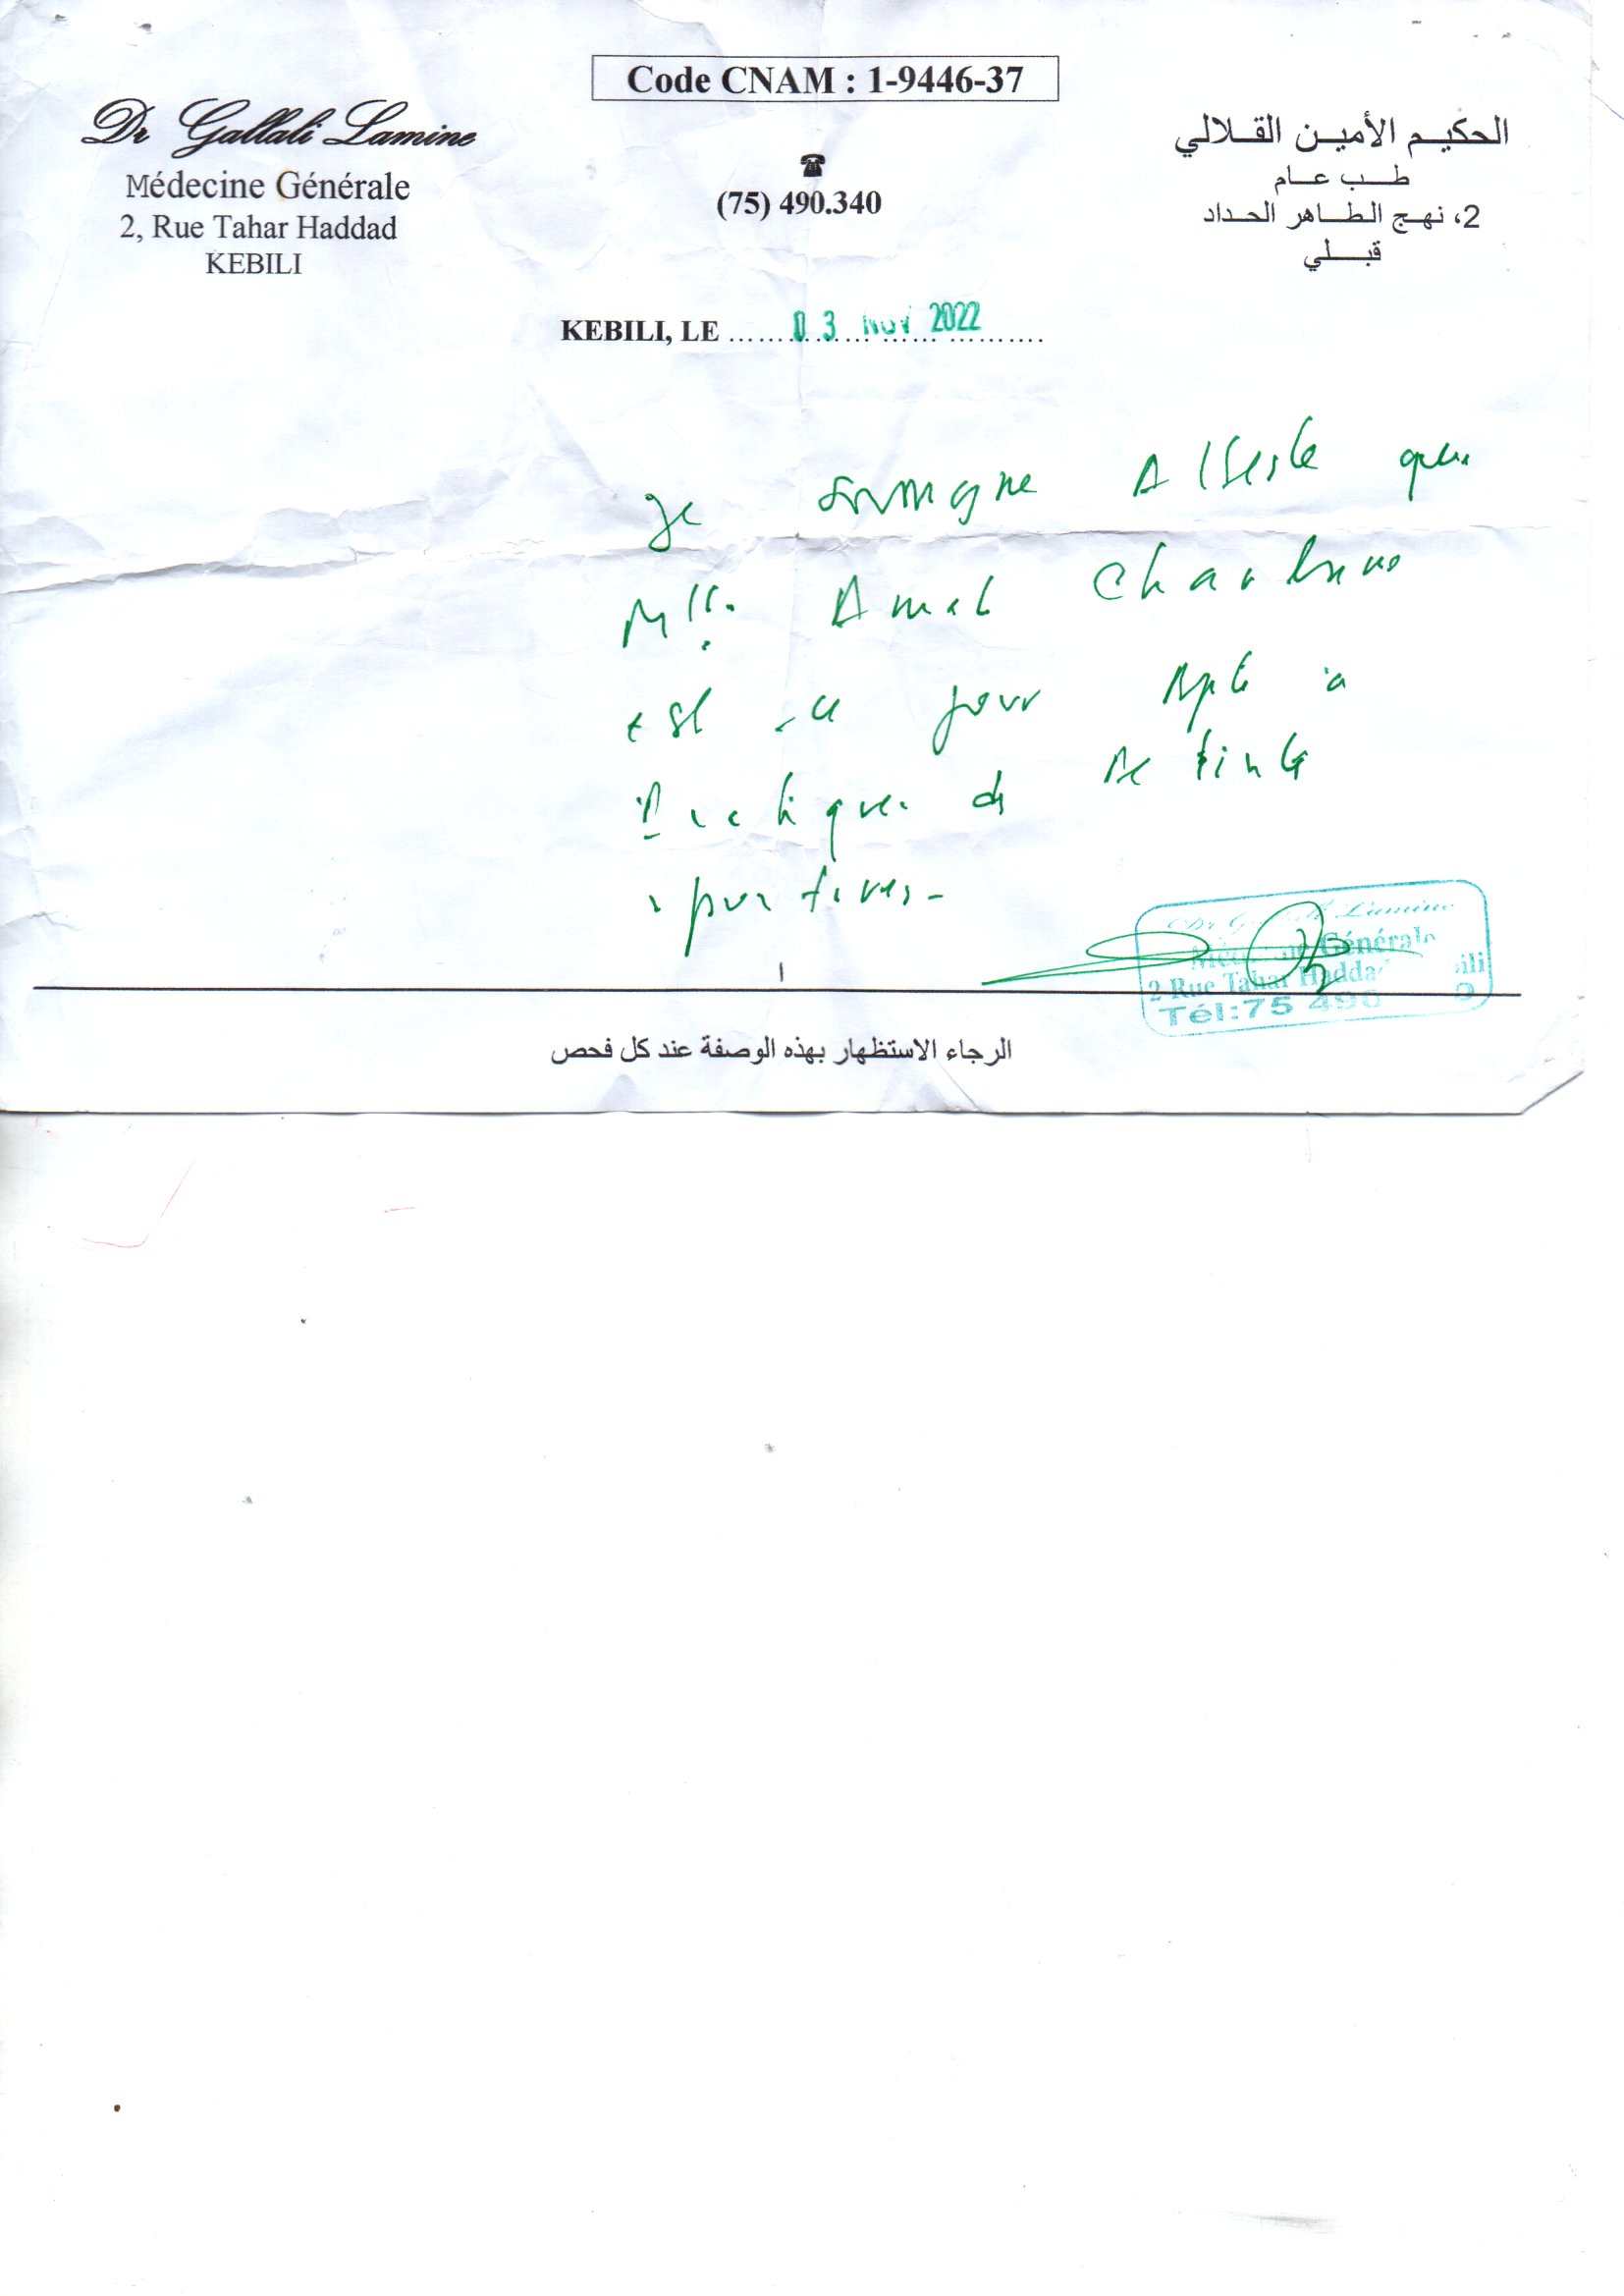 Code CNAM : 1-9446-37
Dr Gallali Lamine
Médecine Générale
2, Rue Tahar Haddad
KEBILI
☎
(75) 490.340
الحكيم الأمين القلالي
طب عام
2، نهج الطاهر الحداد
قبلي
KEBILI, LE 03 NOV 2022
Je soussigné Atteste que
Mlle. Amel
est ce jour Apte à
Pratiquer des Activités
sportives-
Lamine
Générale
2 Rue Tahar Hadda
Tél:75 490
الرجاء الاستظهار بهذه الوصفة عند كل فحص